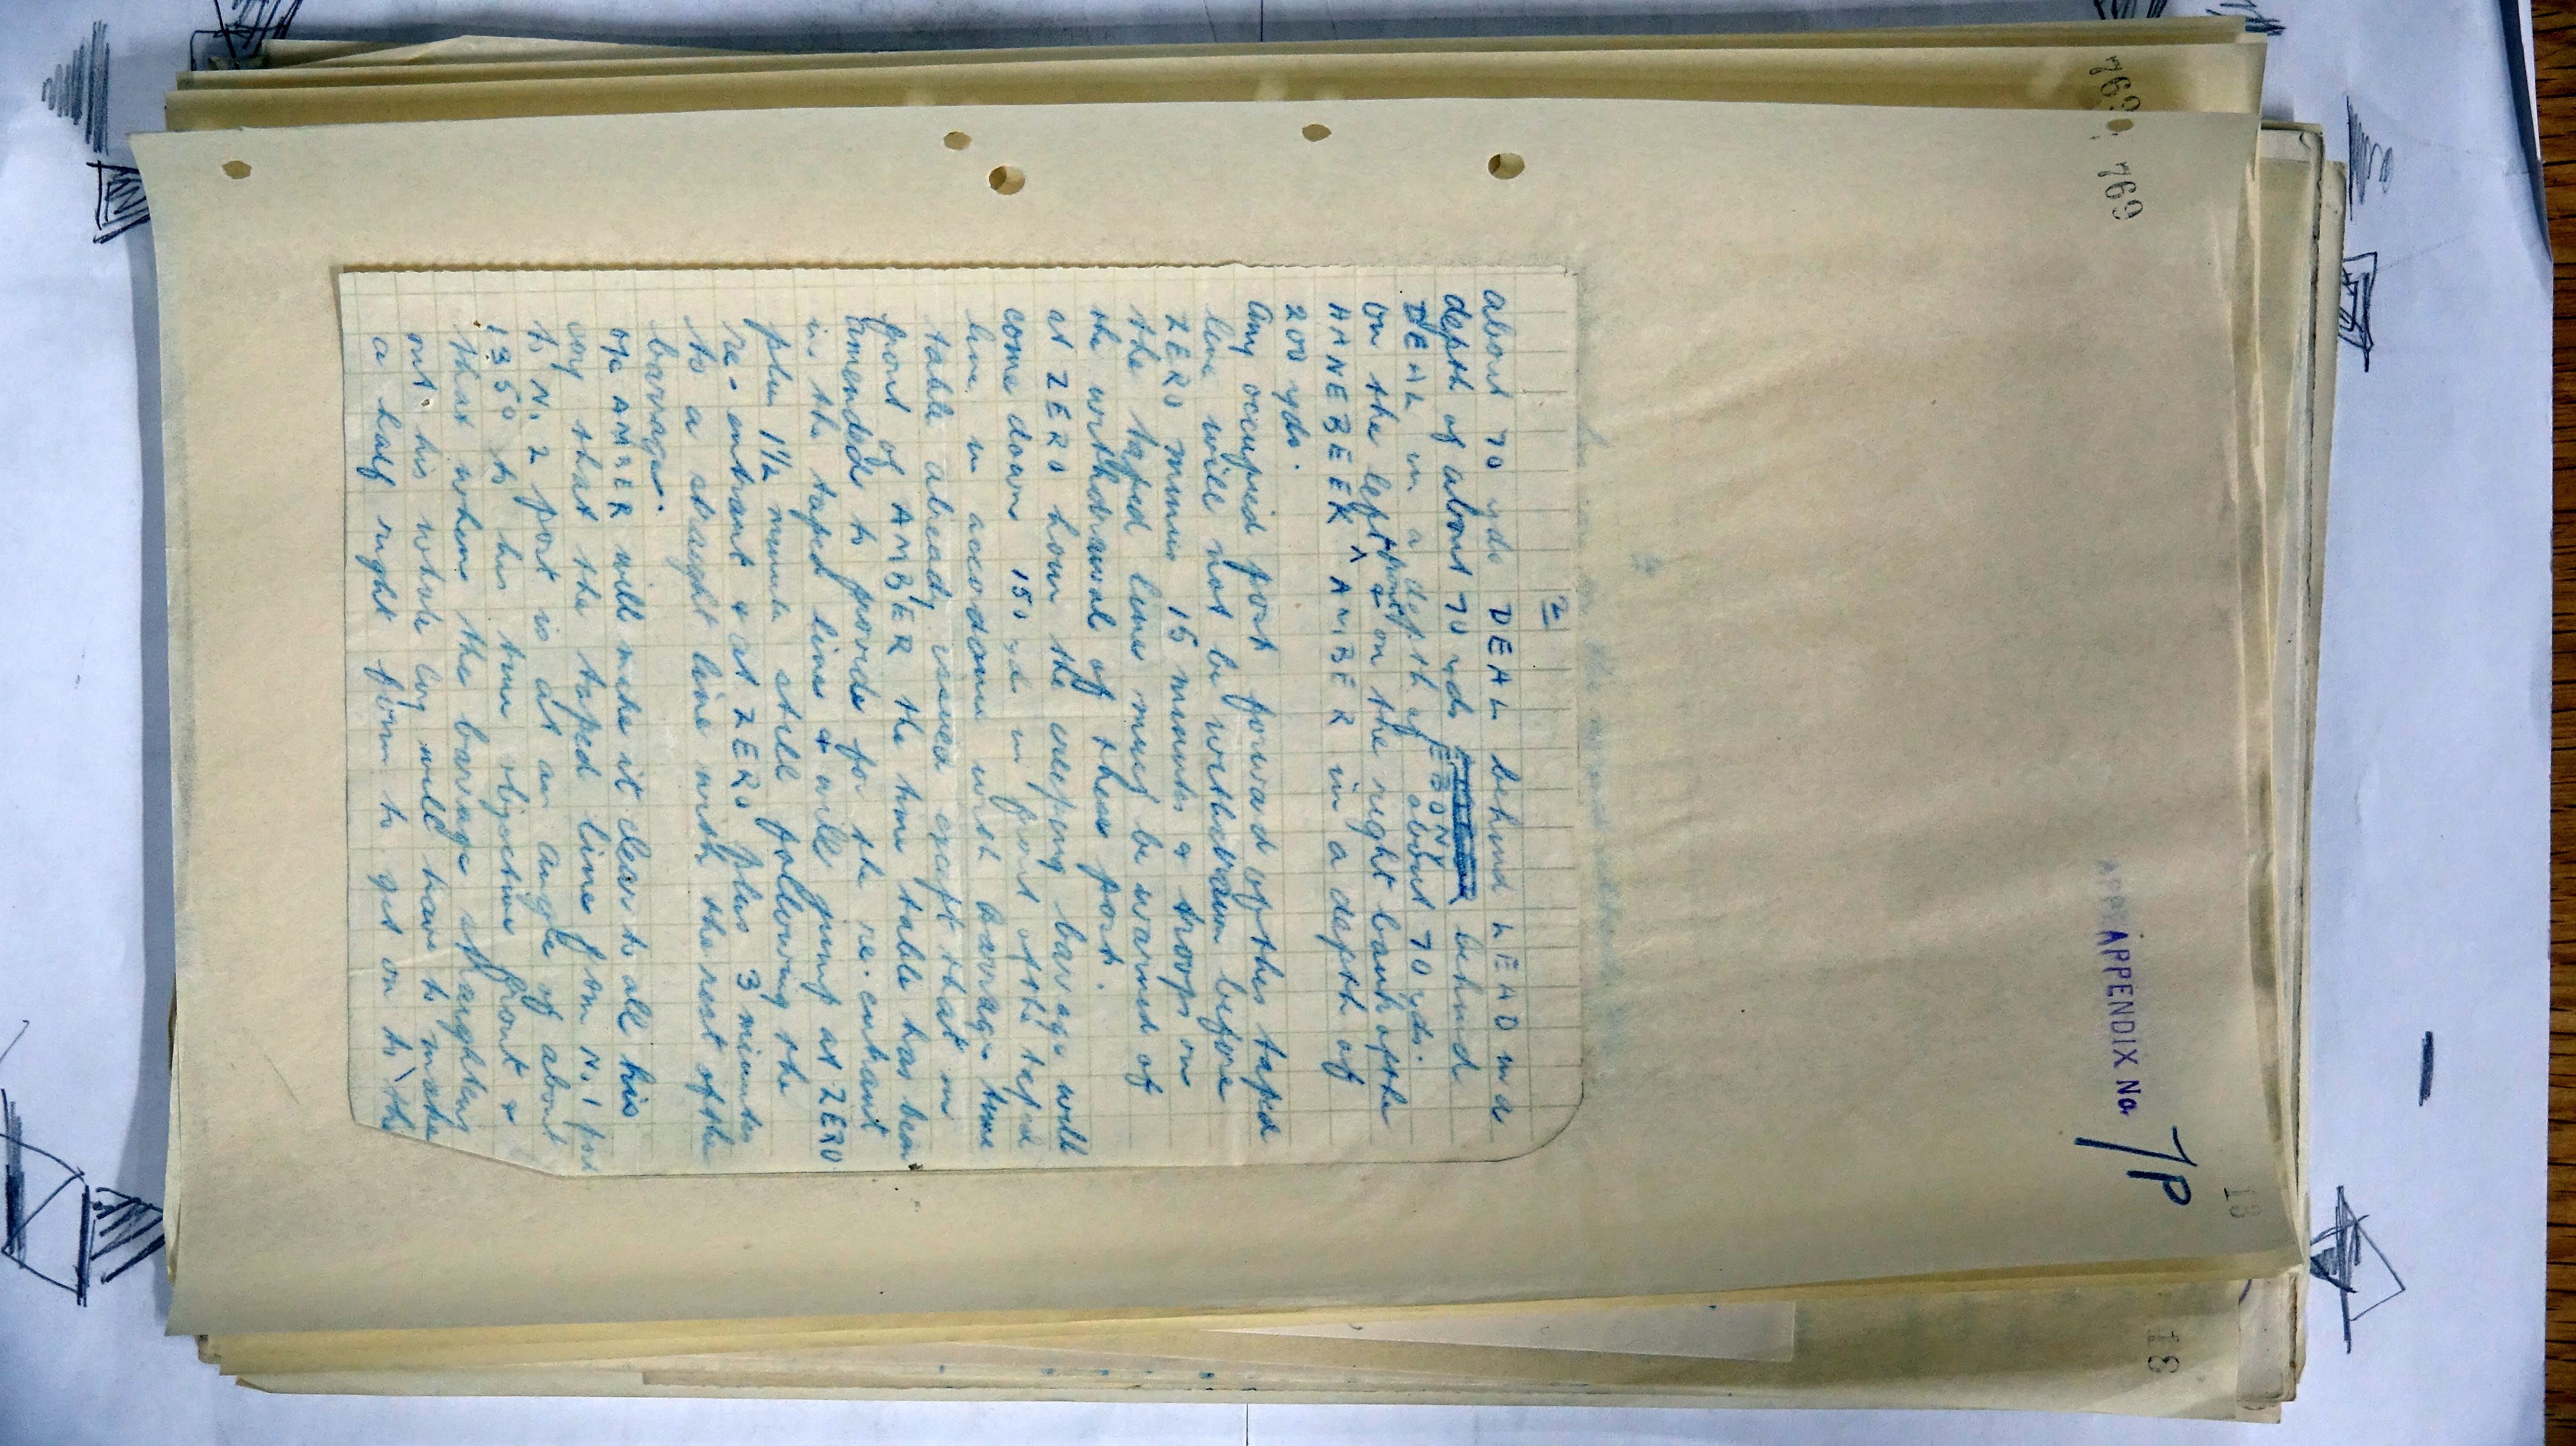 769 769
APPENDIX No. 7P
13
2
about 70 yds DEAL behind LEAD in a
depth of about 70 yds behind
DEAL in a depth of EBONY about 70 yds.
On the left front & on the right bank of the
HANEBEEK AMBER in a depth of
200 yds.
Any occupied post forward of the taped
line will not be withdrawn before
ZERO minus 15 minutes & troops on
the taped line must be warned of
the withdrawal of these posts.
At ZERO hour the creeping barrage will
come down 150 yds in front of the taped
line in accordance with barrage time
table already issued except that in
front of AMBER the time table has been
amended to provide for the re-entrant
in the taped line & will jump at ZERO
plus 1½ minutes still following the
re-entrant & at ZERO plus 3 minutes
to a straight line with the rest of the
barrage.
OC AMBER will make it clear to all his
coy that the taped line from No. 1 post
to No. 2 post is at an angle of about
135° to his true objective front &
that when the barrage straightens
out his whole coy will have to make
a half right form to get on to the
13